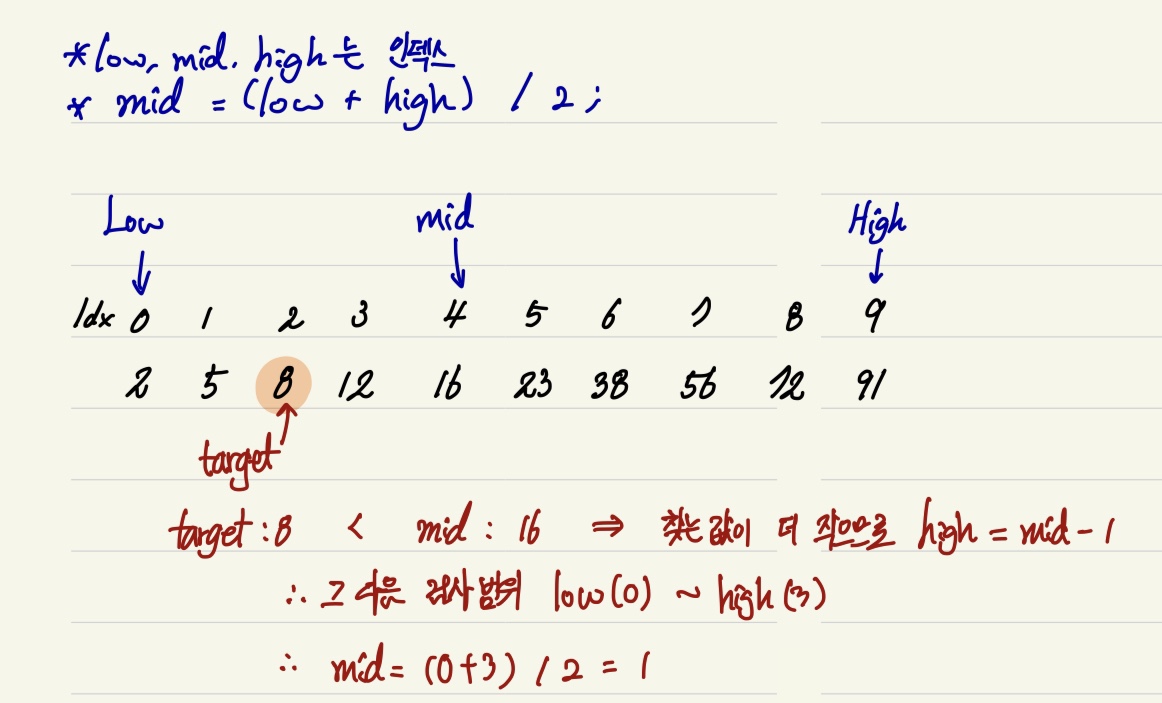 *low, mid, high는 인덱스
* mid = (low + high) / 2;
Low mid High
↓ ↓ ↓
Idx 0 1 2 3 4 5 6 7 8 9
2 5 8 12 16 23 38 56 72 91
target
target : 8 < mid : 16 ⇒ 찾는 값이 더 작으므로 high = mid - 1
∴ 그 다음 검사 범위 low(0) ~ high(3)
∴ mid = (0+3) / 2 = 1